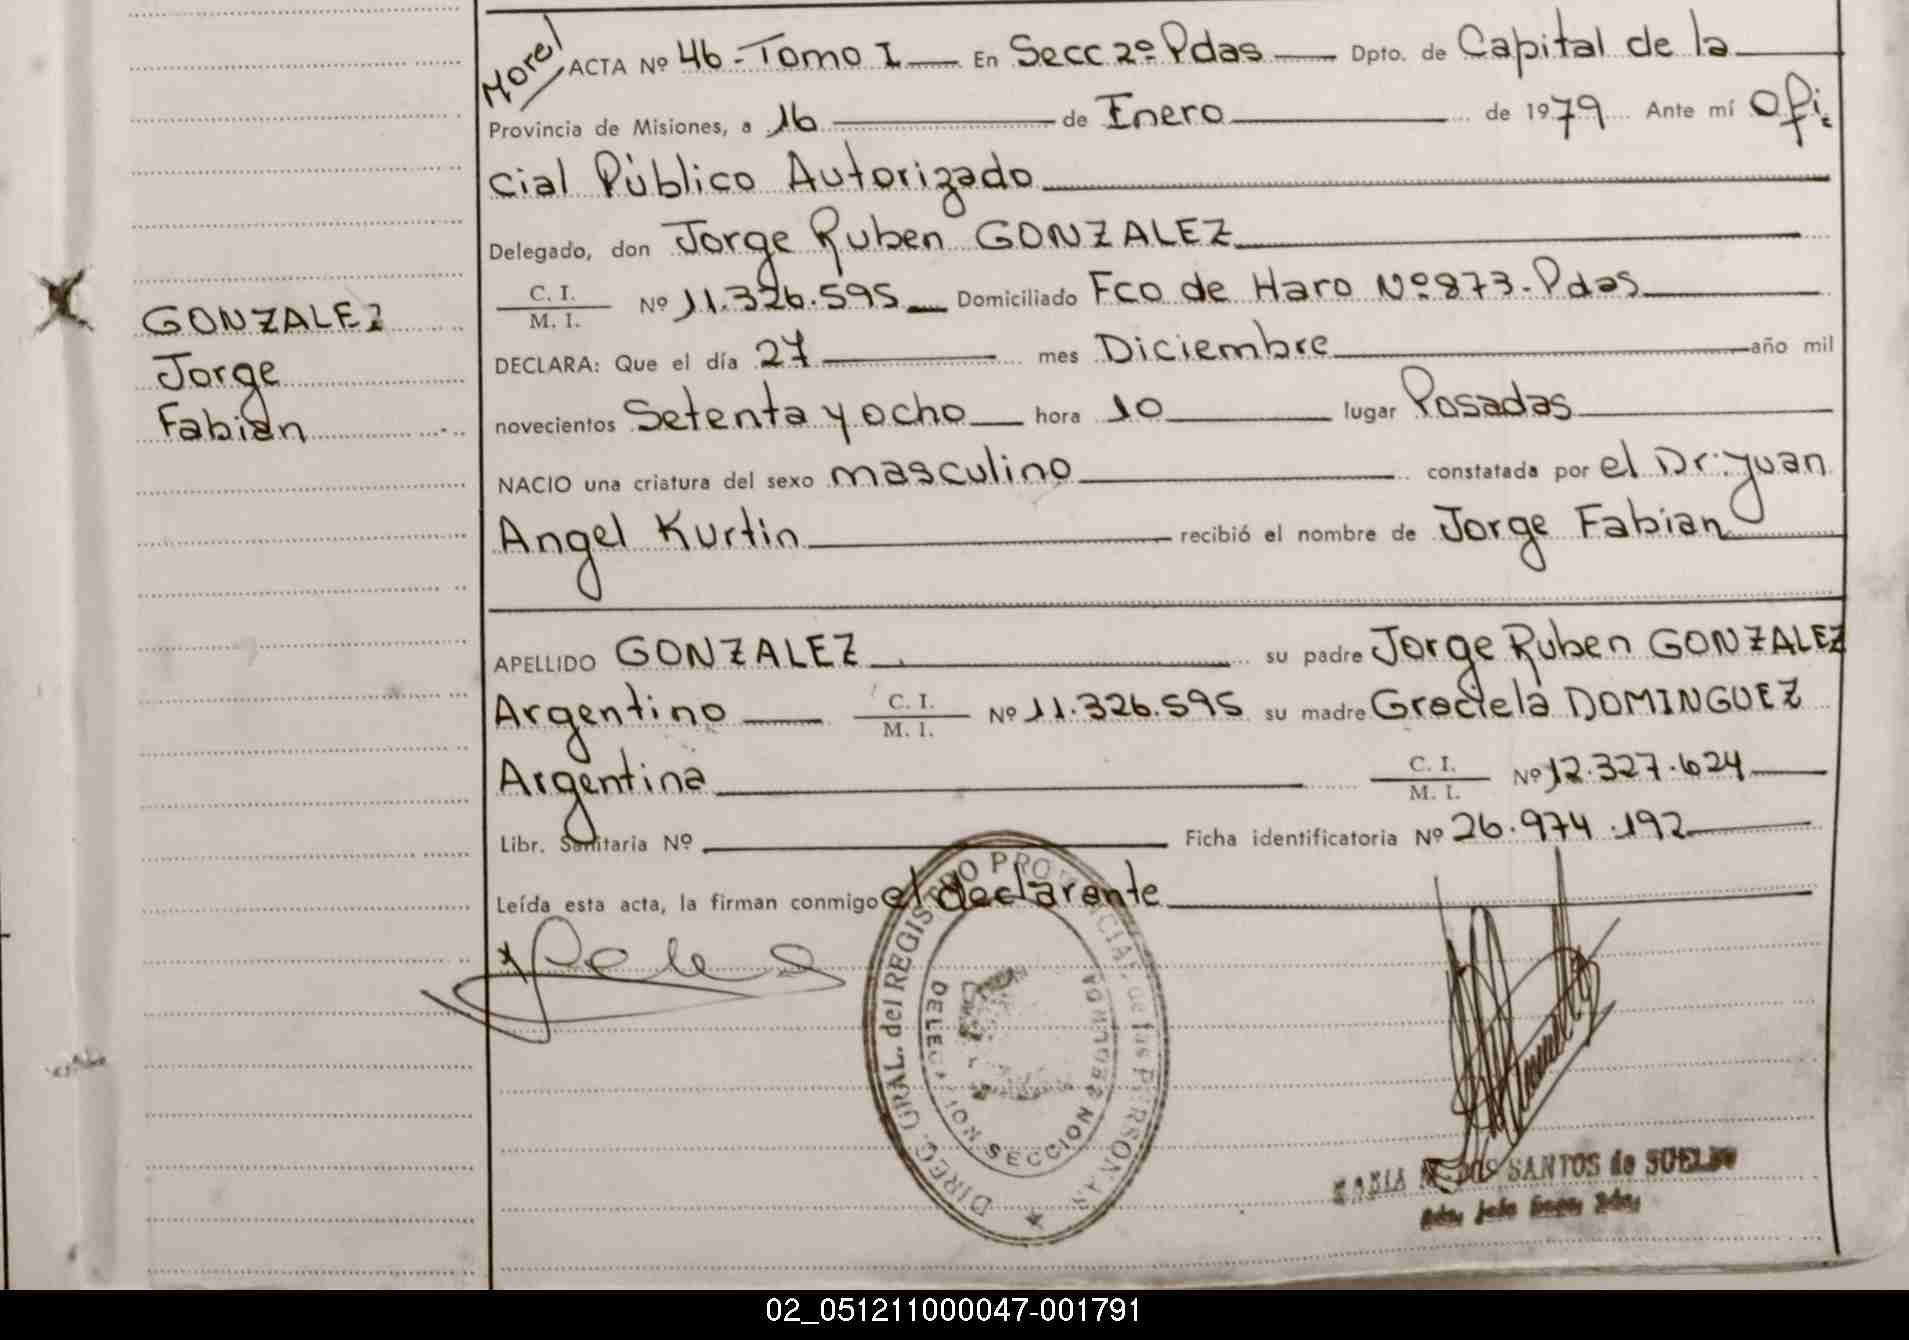 Morel ACTA Nº 46 - Tomo I En Secc 2º Pdas Dpto. de Capital de la
Provincia de Misiones, a 16 de Enero de 1979 Ante mí Ofi.
cial Público Autorizado
Delegado, don Jorge Ruben GONZALEZ
C. I.
M. I. Nº 11.326.595 Domiciliado Fco de Haro Nº 873 - Pdas
DECLARA: Que el día 27 mes Diciembre año mil
novecientos Setenta y ocho hora 10 lugar Posadas
NACIO una criatura del sexo masculino constatada por el Dr. Juan
Angel Kurtin recibió el nombre de Jorge Fabian
GONZALEZ
Jorge
Fabian
APELLIDO GONZALEZ su padre Jorge Ruben GONZALEZ
Argentino C. I.
M. I. Nº 11.326.595 su madre Graciela DOMINGUEZ
Argentina C. I.
M. I. Nº 12.327.624
Libr. Sanitaria Nº Ficha identificatoria Nº 26.974.192
Leída esta acta, la firman conmigo el declarante
DIREC. GRAL. del REGISTRO PROVINCIAL de las PERSONAS
DELEGACION SECCION SEGUNDA
MARIA SANTOS de SUELDO
02_051211000047-001791